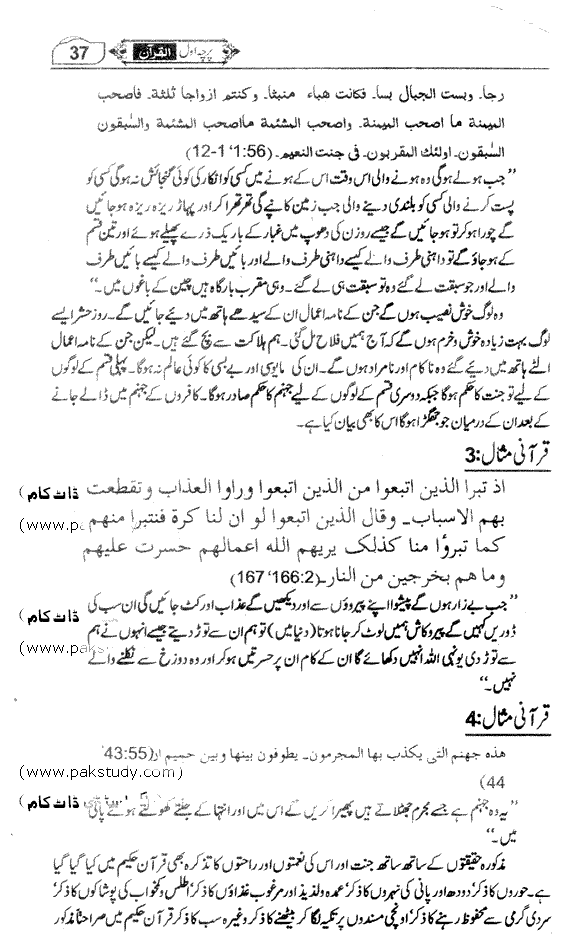 پرچہ اول القرآن 37
رجا۔ وبست الجبال بسا۔ فکانت ھباء منبثا۔ وکنتم ازواجا ثلثة۔ فاصحب
المیمنة ما اصحب المیمنة۔ واصحب المشئمة ما اصحب المشئمة والسبقون
السبقون۔ اولئک المقربون۔ فی جنت النعیم۔ (56:1' 1-12)
”جب ہولے ہوگی وہ ہونے والی اس وقت اس کے ہونے میں کسی کو انکار کی کوئی گنجائش نہ ہوگی کسی کو
پست کرنے والی کسی کو بلندی دینے والی جب زمین کانپے گی تھر تھرا کر اور پہاڑ ریزہ ریزہ ہو جائیں
گے چورا ہو کر تو ہو جائیں گے جیسے روزن کی دھوپ میں غبار کے باریک ذرے پھیلے ہوئے اور تین قسم
کے ہو جاؤ گے تو داہنی طرف والے کیسے داہنی طرف والے اور بائیں طرف والے کیسے بائیں طرف
والے اور جو سبقت لے گئے وہ تو سبقت ہی لے گئے۔ وہی مقرب بارگاہ ہیں چین کے باغوں میں۔“
وہ لوگ خوش نصیب ہوں گے جن کے نامہ اعمال ان کے سیدھے ہاتھ میں دیئے جائیں گے۔ روز حشر ایسے
لوگ بہت زیادہ خوش و خرم ہوں گے کہ آج ہمیں فلاح مل گئی۔ ہم ہلاکت سے بچ گئے ہیں۔ لیکن جن کے نامہ اعمال
الٹے ہاتھ میں دیئے گئے وہ ناکام اور نامراد ہوں گے۔ ان کی مایوسی اور بے بسی کا کوئی عالم نہ ہوگا۔ پہلی قسم کے لوگوں
کے لیے تو جنت کا حکم ہوگا جبکہ دوسری قسم کے لوگوں کے لیے جہنم کا حکم صادر ہوگا۔ کافروں کے جہنم میں ڈالے جانے
کے بعد ان کے درمیان جو جھگڑا ہوگا اس کا بھی بیان کیا ہے۔
قرآنی مثال:3
اذ تبرا الذین اتبعوا من الذین اتبعوا وراوا العذاب وتقطعت
ڈاٹ کام)
بھم الاسباب۔ وقال الذین اتبعوا لو ان لنا کرة فنتبرا منھم
(www.pa
کما تبرؤا منا کذلک یریھم اللہ اعمالھم حسرت علیھم
وما ھم بخرجین من النار۔ (2:166' 167)
”جب بے زار ہوں گے پیشوا اپنے پیروؤں سے اور دیکھیں گے عذاب اور کٹ جائیں گی ان سب کی
ڈاٹ کام)
ڈوریں کہیں گے پیرو کاش ہمیں لوٹ کر جانا ہوتا (دنیا میں) تو ہم ان سے توڑ دیتے جیسے انہوں نے ہم
سے توڑ دی یونہی اللہ انہیں دکھائے گا ان کے کام ان پر حسرتیں ہو کر اور وہ دوزخ سے نکلنے والے
(www.paks
نہیں۔“
قرآنی مثال:4
ھذہ جھنم التی یکذب بھا المجرمون۔ یطوفون بینھا وبین حمیم ان (55:43'
(www.pakstudy.com)
44)
”یہ وہ جہنم ہے جسے مجرم جھٹلاتے ہیں پھیرا کریں گے اس میں اور انتہا کے جلتے کھولتے ہوئے پانی
ڈاٹ کام)
میں۔“
مذکورہ حقیقتوں کے ساتھ ساتھ جنت اور اس کی نعمتوں اور راحتوں کا تذکرہ بھی قرآن حکیم میں کیا گیا گیا
ہے۔ حوروں کا ذکر' دودھ اور پانی کی نہروں کا ذکر' عمدہ ولذیذ اور مرغوب غذاؤں کا ذکر' اطلس و کمخواب کی پوشاکوں کا ذکر'
سردی گرمی سے محفوظ رہنے کا ذکر' اونچی مسندوں پر تکیہ لگا کر بیٹھنے کا ذکر وغیرہ سب کا ذکر قرآن حکیم میں صراحتاً مذکور